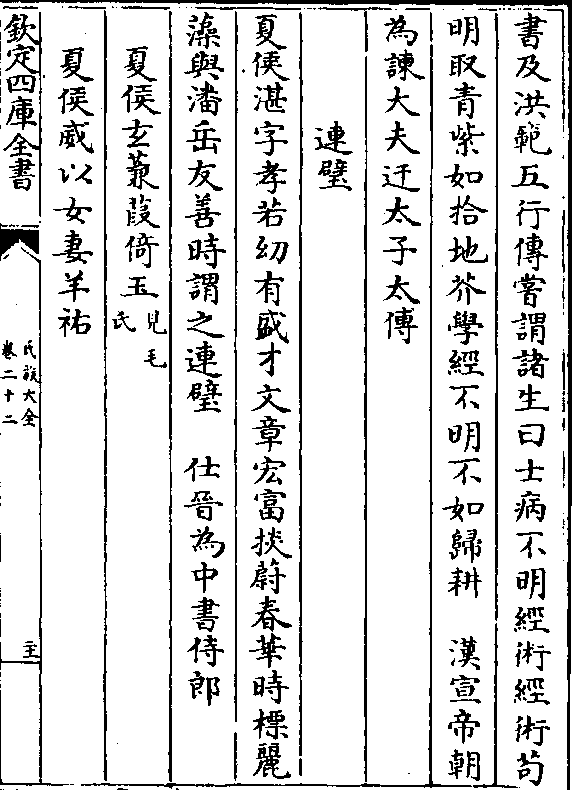 書及洪範五行傳嘗謂諸生曰士病不明經術經術苟
明取青紫如拾地芥學經不明不如歸耕　漢宣帝朝
為諫大夫迁太子太傅
連璧
夏侯湛字孝若幼有盛才文章宏富掞蔚春華時標麗
藻與潘岳友善時謂之連璧　仕晉為中書侍郎
夏侯玄蒹葭倚玉見毛氏
夏侯威以女妻羊祜
欽定四庫全書
氏族大全
卷二十二